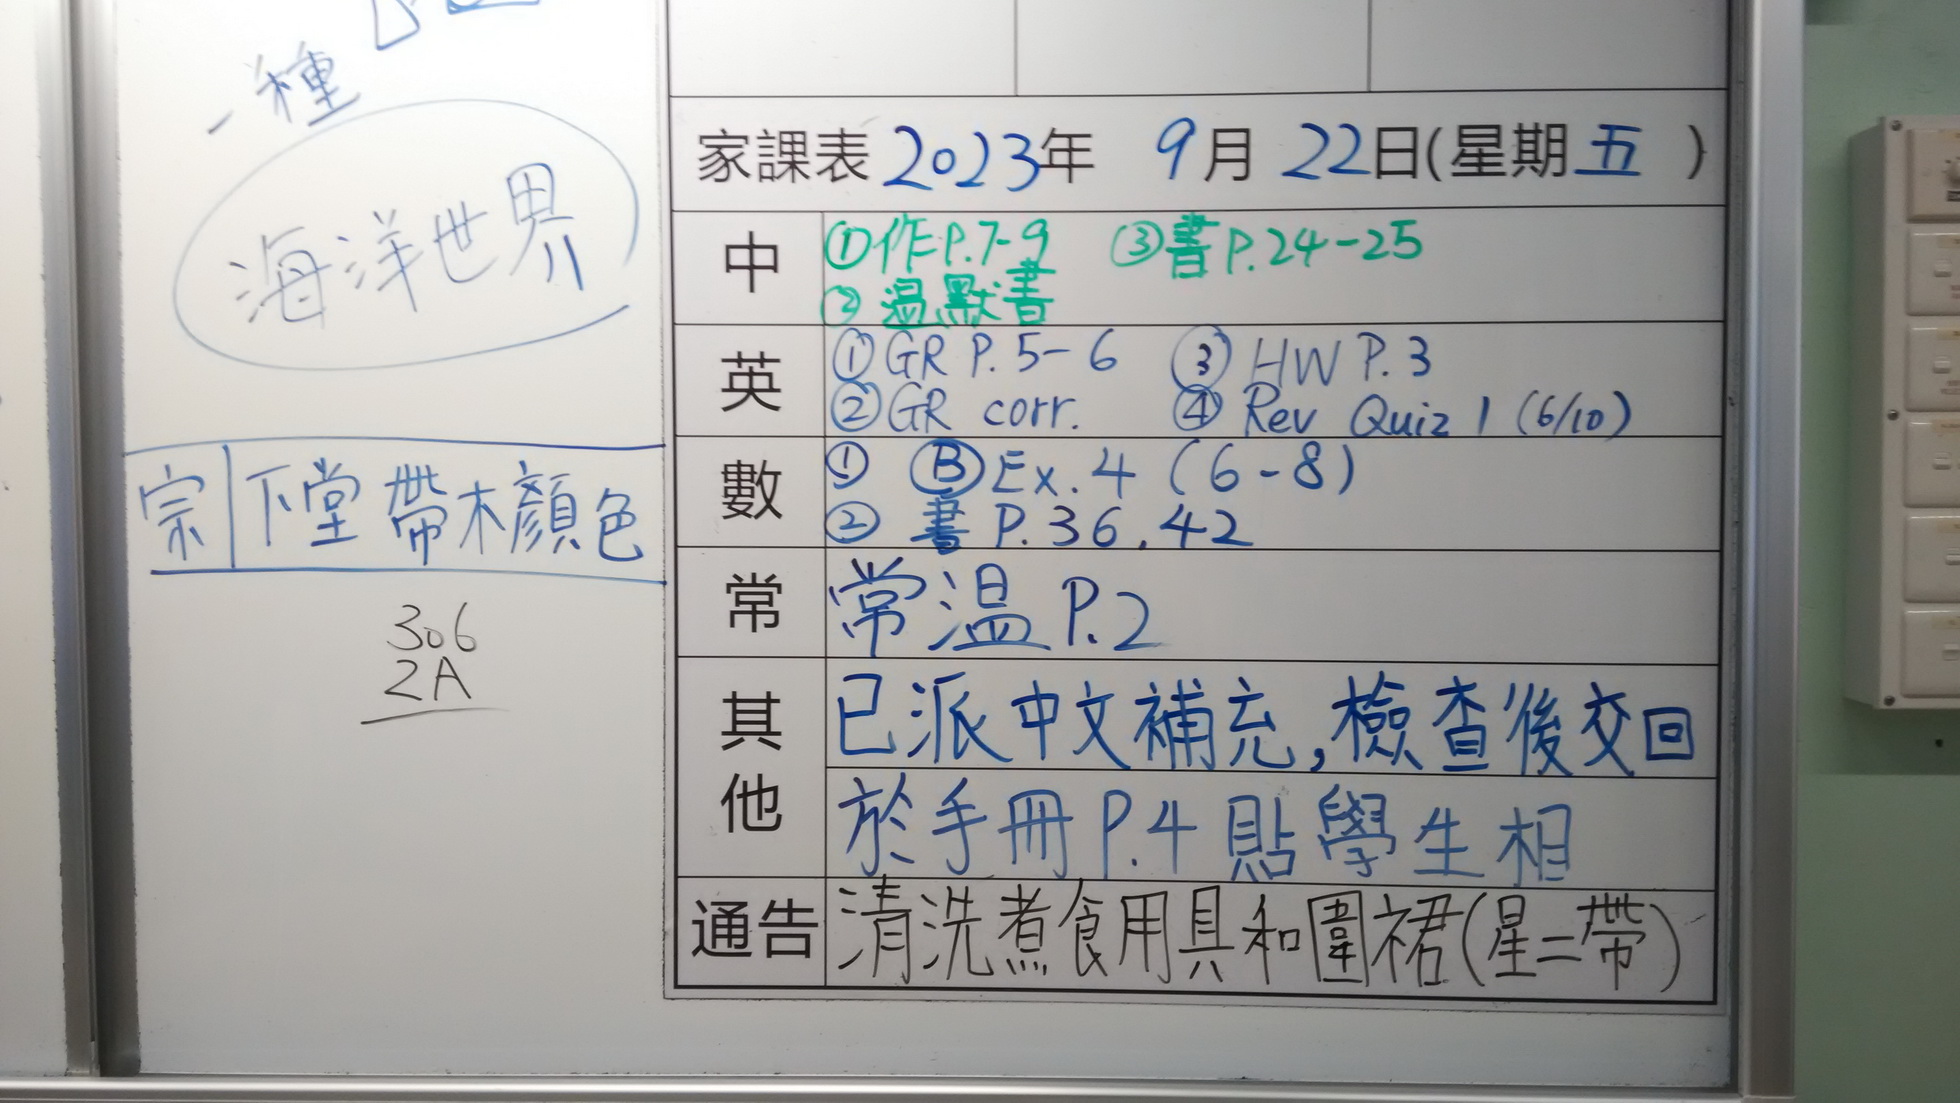 一種
海洋世界
宗 下堂帶木顏色
306
2A
家課表 2023年 9月 22日(星期五)
中 ①作P.7-9 ③書P.24-25
②溫默書
英 ①GR P.5-6 ③HW P.3
②GR corr. ④Rev Quiz 1 (6/10)
數 ① Ⓑ Ex.4 (6-8)
② 書 P.36,42
常 常溫P.2
其他 已派中文補充,檢查後交回
於手冊P.4貼學生相
通告 清洗煮食用具和圍裙(星二帶)